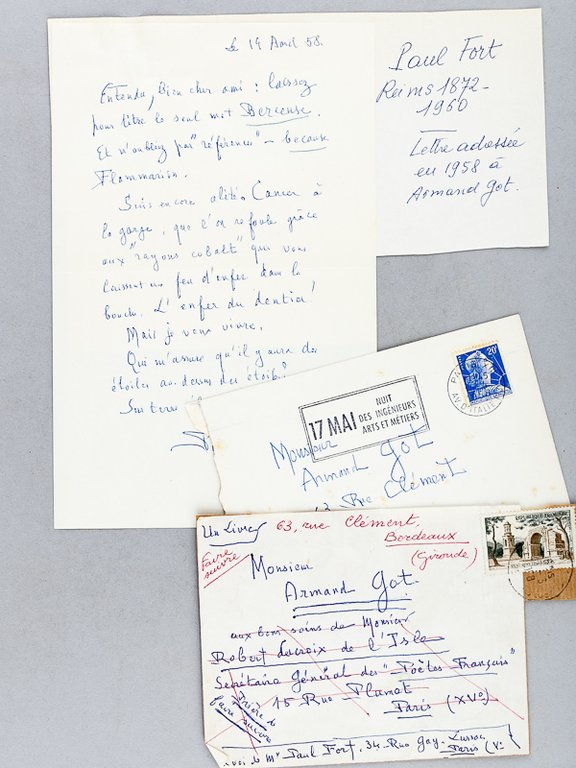 Le 19 Avril 58.
Entendu, bien cher ami : laissez
pour titre le seul mot Berceuse.
Et n'oubliez pas "référence" – because
Flammarion.
Suis encore alité. Cancer à
la gorge, que l'on refoule grâce
aux "rayons cobalt" qui vous
laissent un feu d'enfer dans la
bouche. L'enfer du dentier !
Mais je veux vivre.
Qui m'assure qu'il y aura des
étoiles au-dessus des étoiles ?
Sur terre il
Paul Fort
Reims 1872-
1960
Lettre adressée
en 1958 à
Armand Got.
20F
PARIS
AV. D'ITALIE
17 MAI NUIT DES INGÉNIEURS ARTS ET MÉTIERS
Monsieur
Armand Got
Rue Clément
Un Livre
63, rue Clément,
Bordeaux
(Gironde)
Faire
suivre
Monsieur
Armand Got.
aux bons soins de Monsieur
Robert Lacroix de l'Isle
Secrétaire Général des "Poètes Français"
15 Rue Plumet
Paris (XVe)
Prière de
faire suivre
Envoi de Mr Paul Fort, 34, Rue Gay-Lussac
Paris (Ve